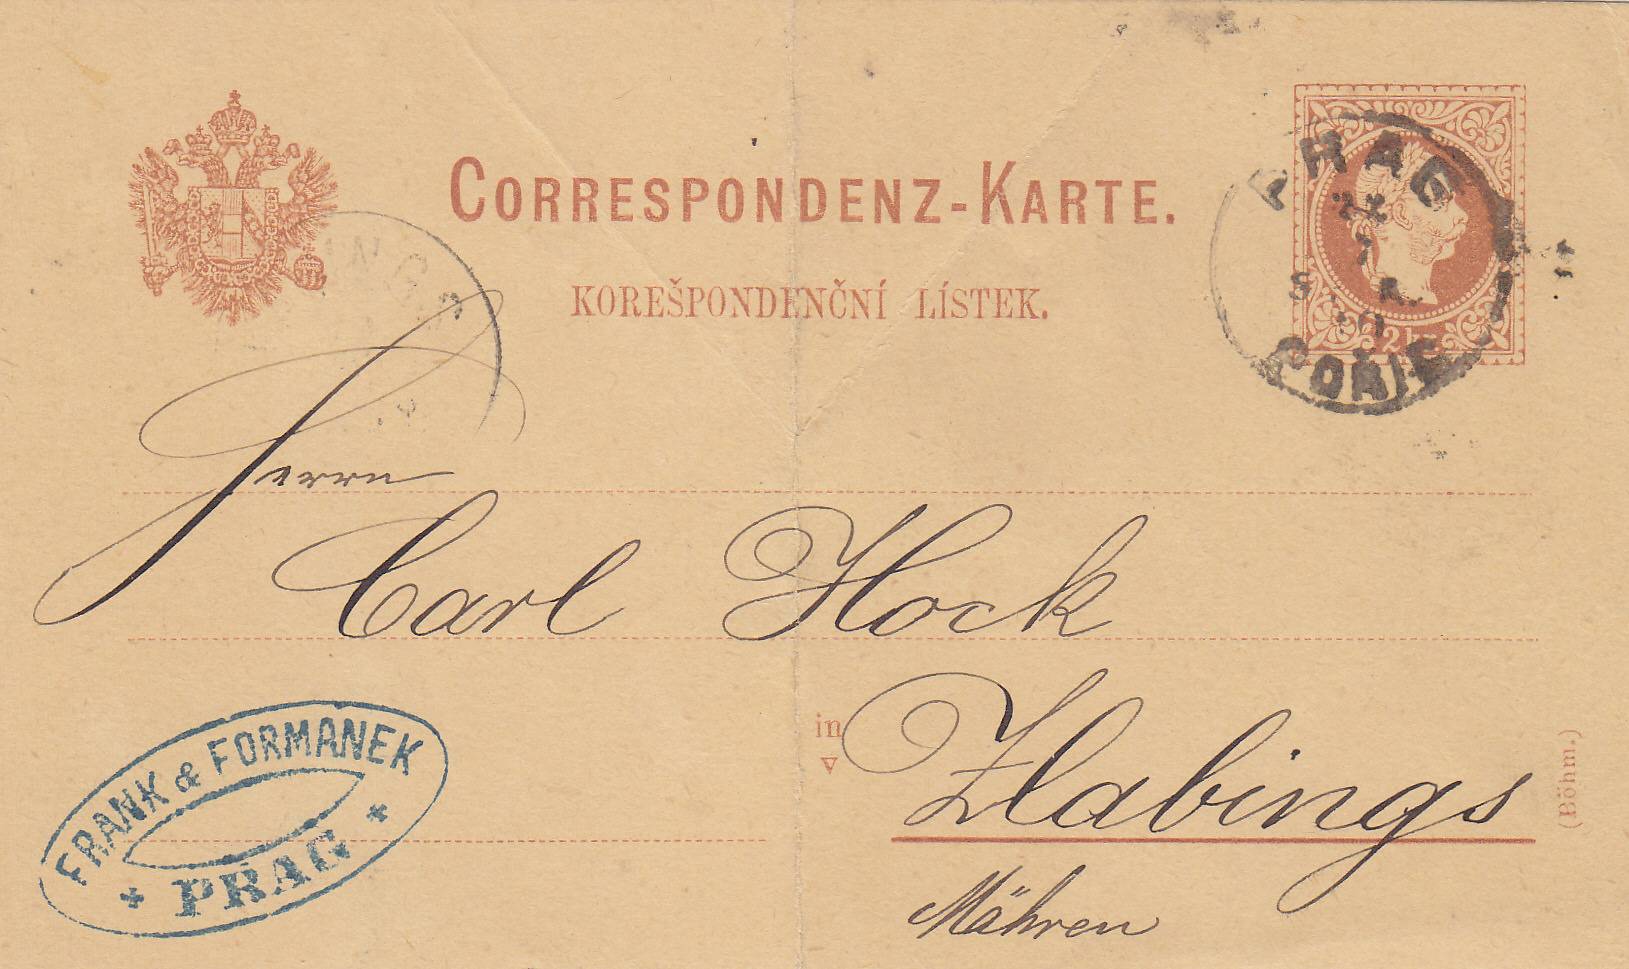 CORRESPONDENZ-KARTE.
KOREŠPONDENČNÍ LÍSTEK.
PRAG
PORIC
2 kr
Herrn
Carl Hock
in
v
Zlabings
Mähren
(Böhm.)
FRANK & FORMANEK
PRAG